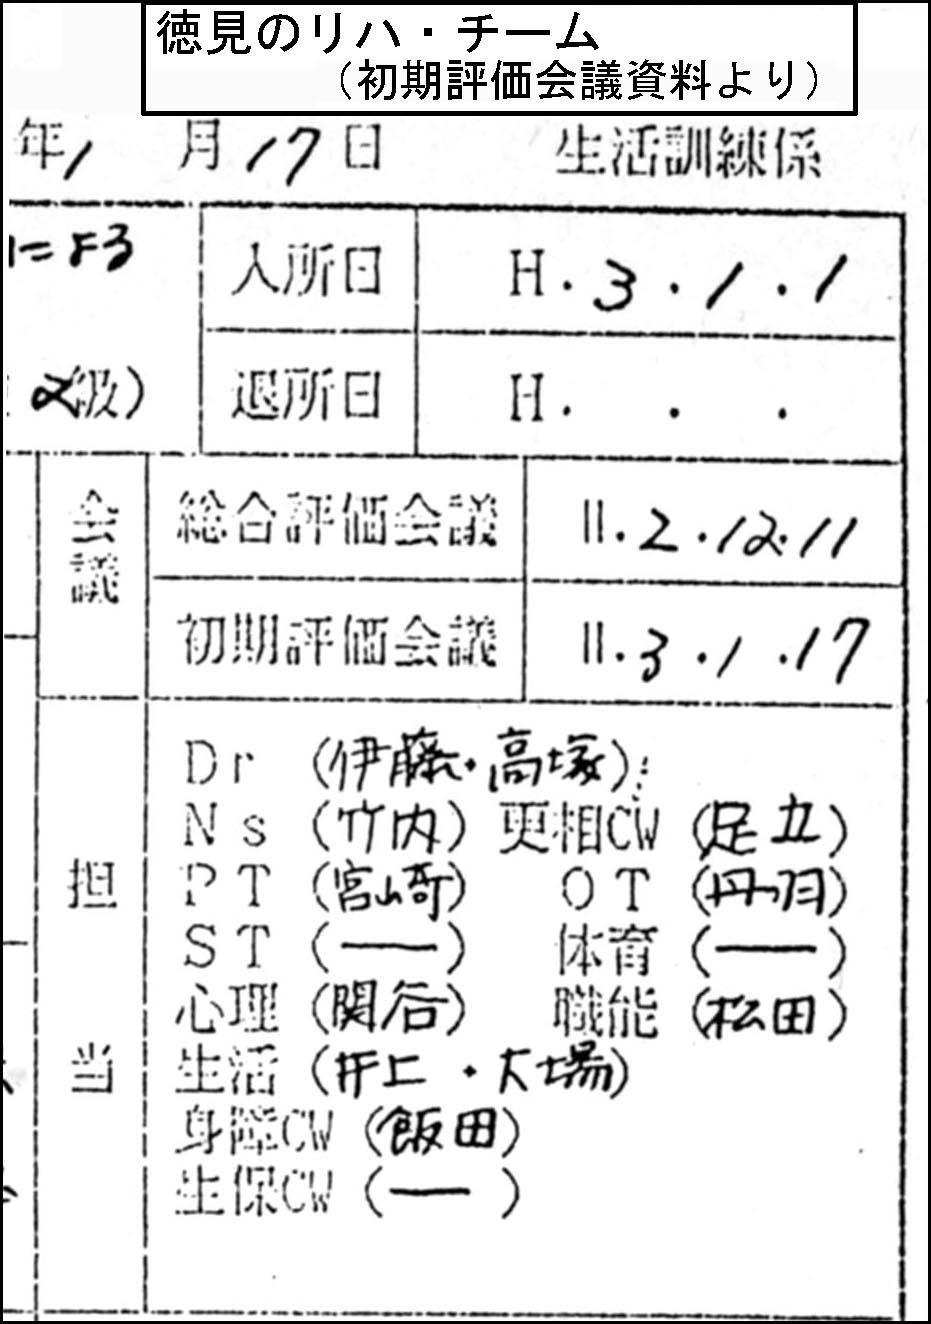 徳見のリハ・チーム
（初期評価会議資料より）
年1 月17日 生活訓練係
による
入所日 H.3.1.1
2級）
退所日 H. . .
会議
総合評価会議 H.2.12.11
初期評価会議 H.3.1.17
担当
Dr（伊藤・高塚）
Ns（竹内）更相CW（足立）
PT（宮崎）OT（丹羽）
ST（―）体育（―）
心理（関谷）職能（松田）
生活（井上・大場）
身障CW（飯田）
生保CW（―）